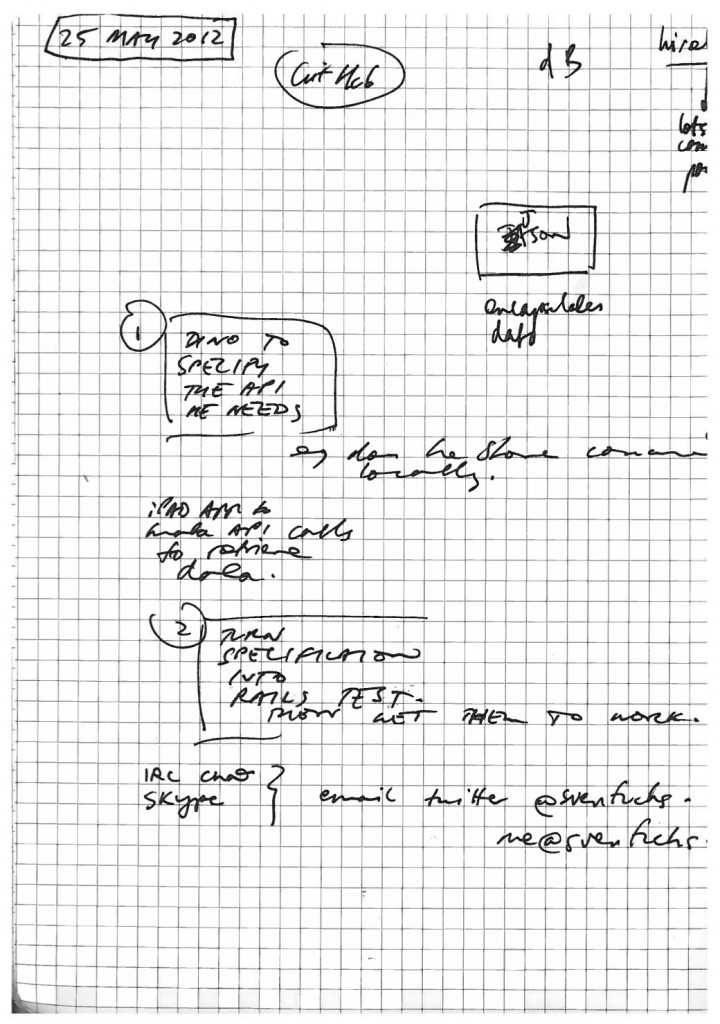 25 MAY 2012
GitHub
dB
lots
JSON
encapsulates
data
1
DINO TO
SPECIFY
THE API
HE NEEDS
eg does he store
locally.
iPAD APP to
make API calls
to retrieve
data.
2
TURN
SPECIFICATION
INTO
RAILS TEST.
THEN GET THEM TO WORK.
IRC chat
SKYPE
email twitter @svenfuchs.
me@svenfuchs.